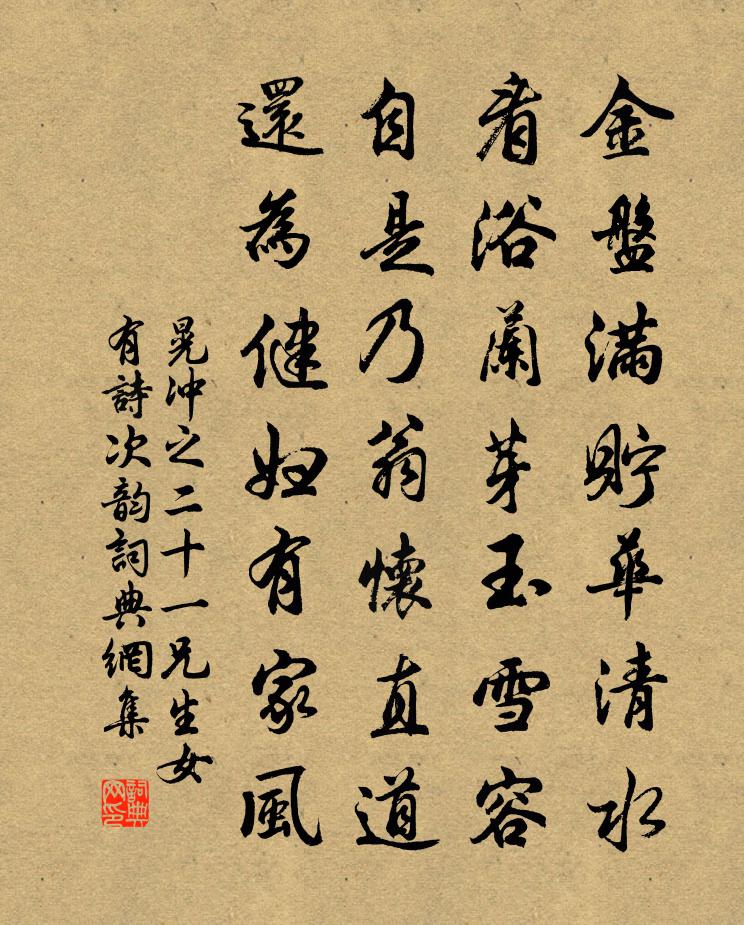 金盤滿貯華清水
看浴蘭芽玉雪容
自是乃翁懷直道
還為健婦有家風
晁冲之二十一兄生女
有詩次韵詞典網集
詞典
网印